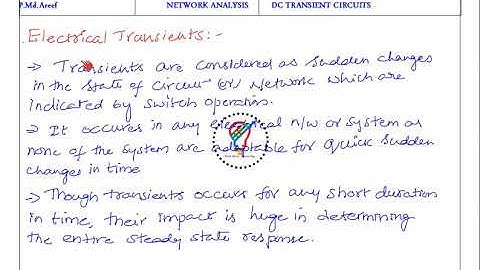 P.Md.Areef NETWORK ANALYSIS DC TRANSIENT CIRCUITS
Electrical Transients:-
→ Transients are considered as sudden changes
in the state of circuit (or) Network which are
indicated by switch operation.
→ It occures in any electrical n/w or system as
none of the system are adaptable for quick sudden
changes in time
→ Though transients occurs for any short duration
in time, their impact is huge in determining
the entire steady state response.